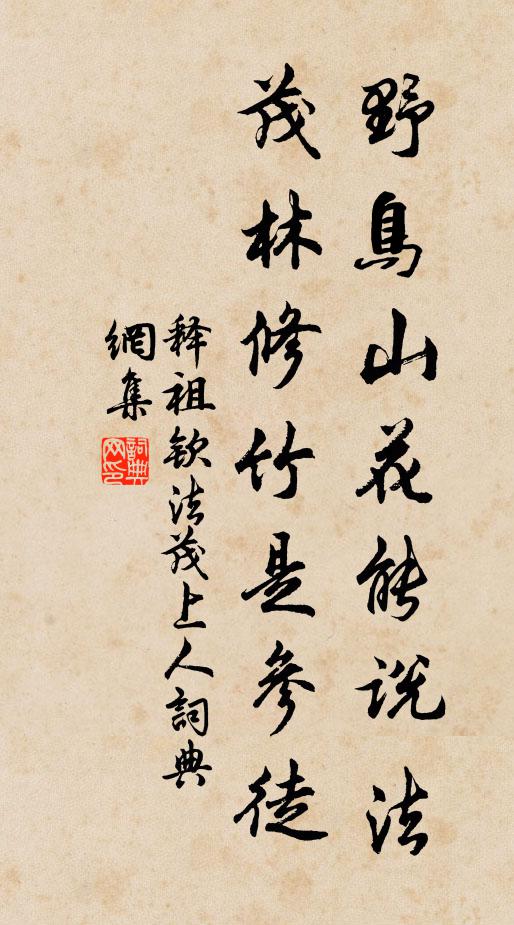 野鳥山花能説法
茂林修竹是參徒
释祖欽法茂上人詞典
網集
詞典網印